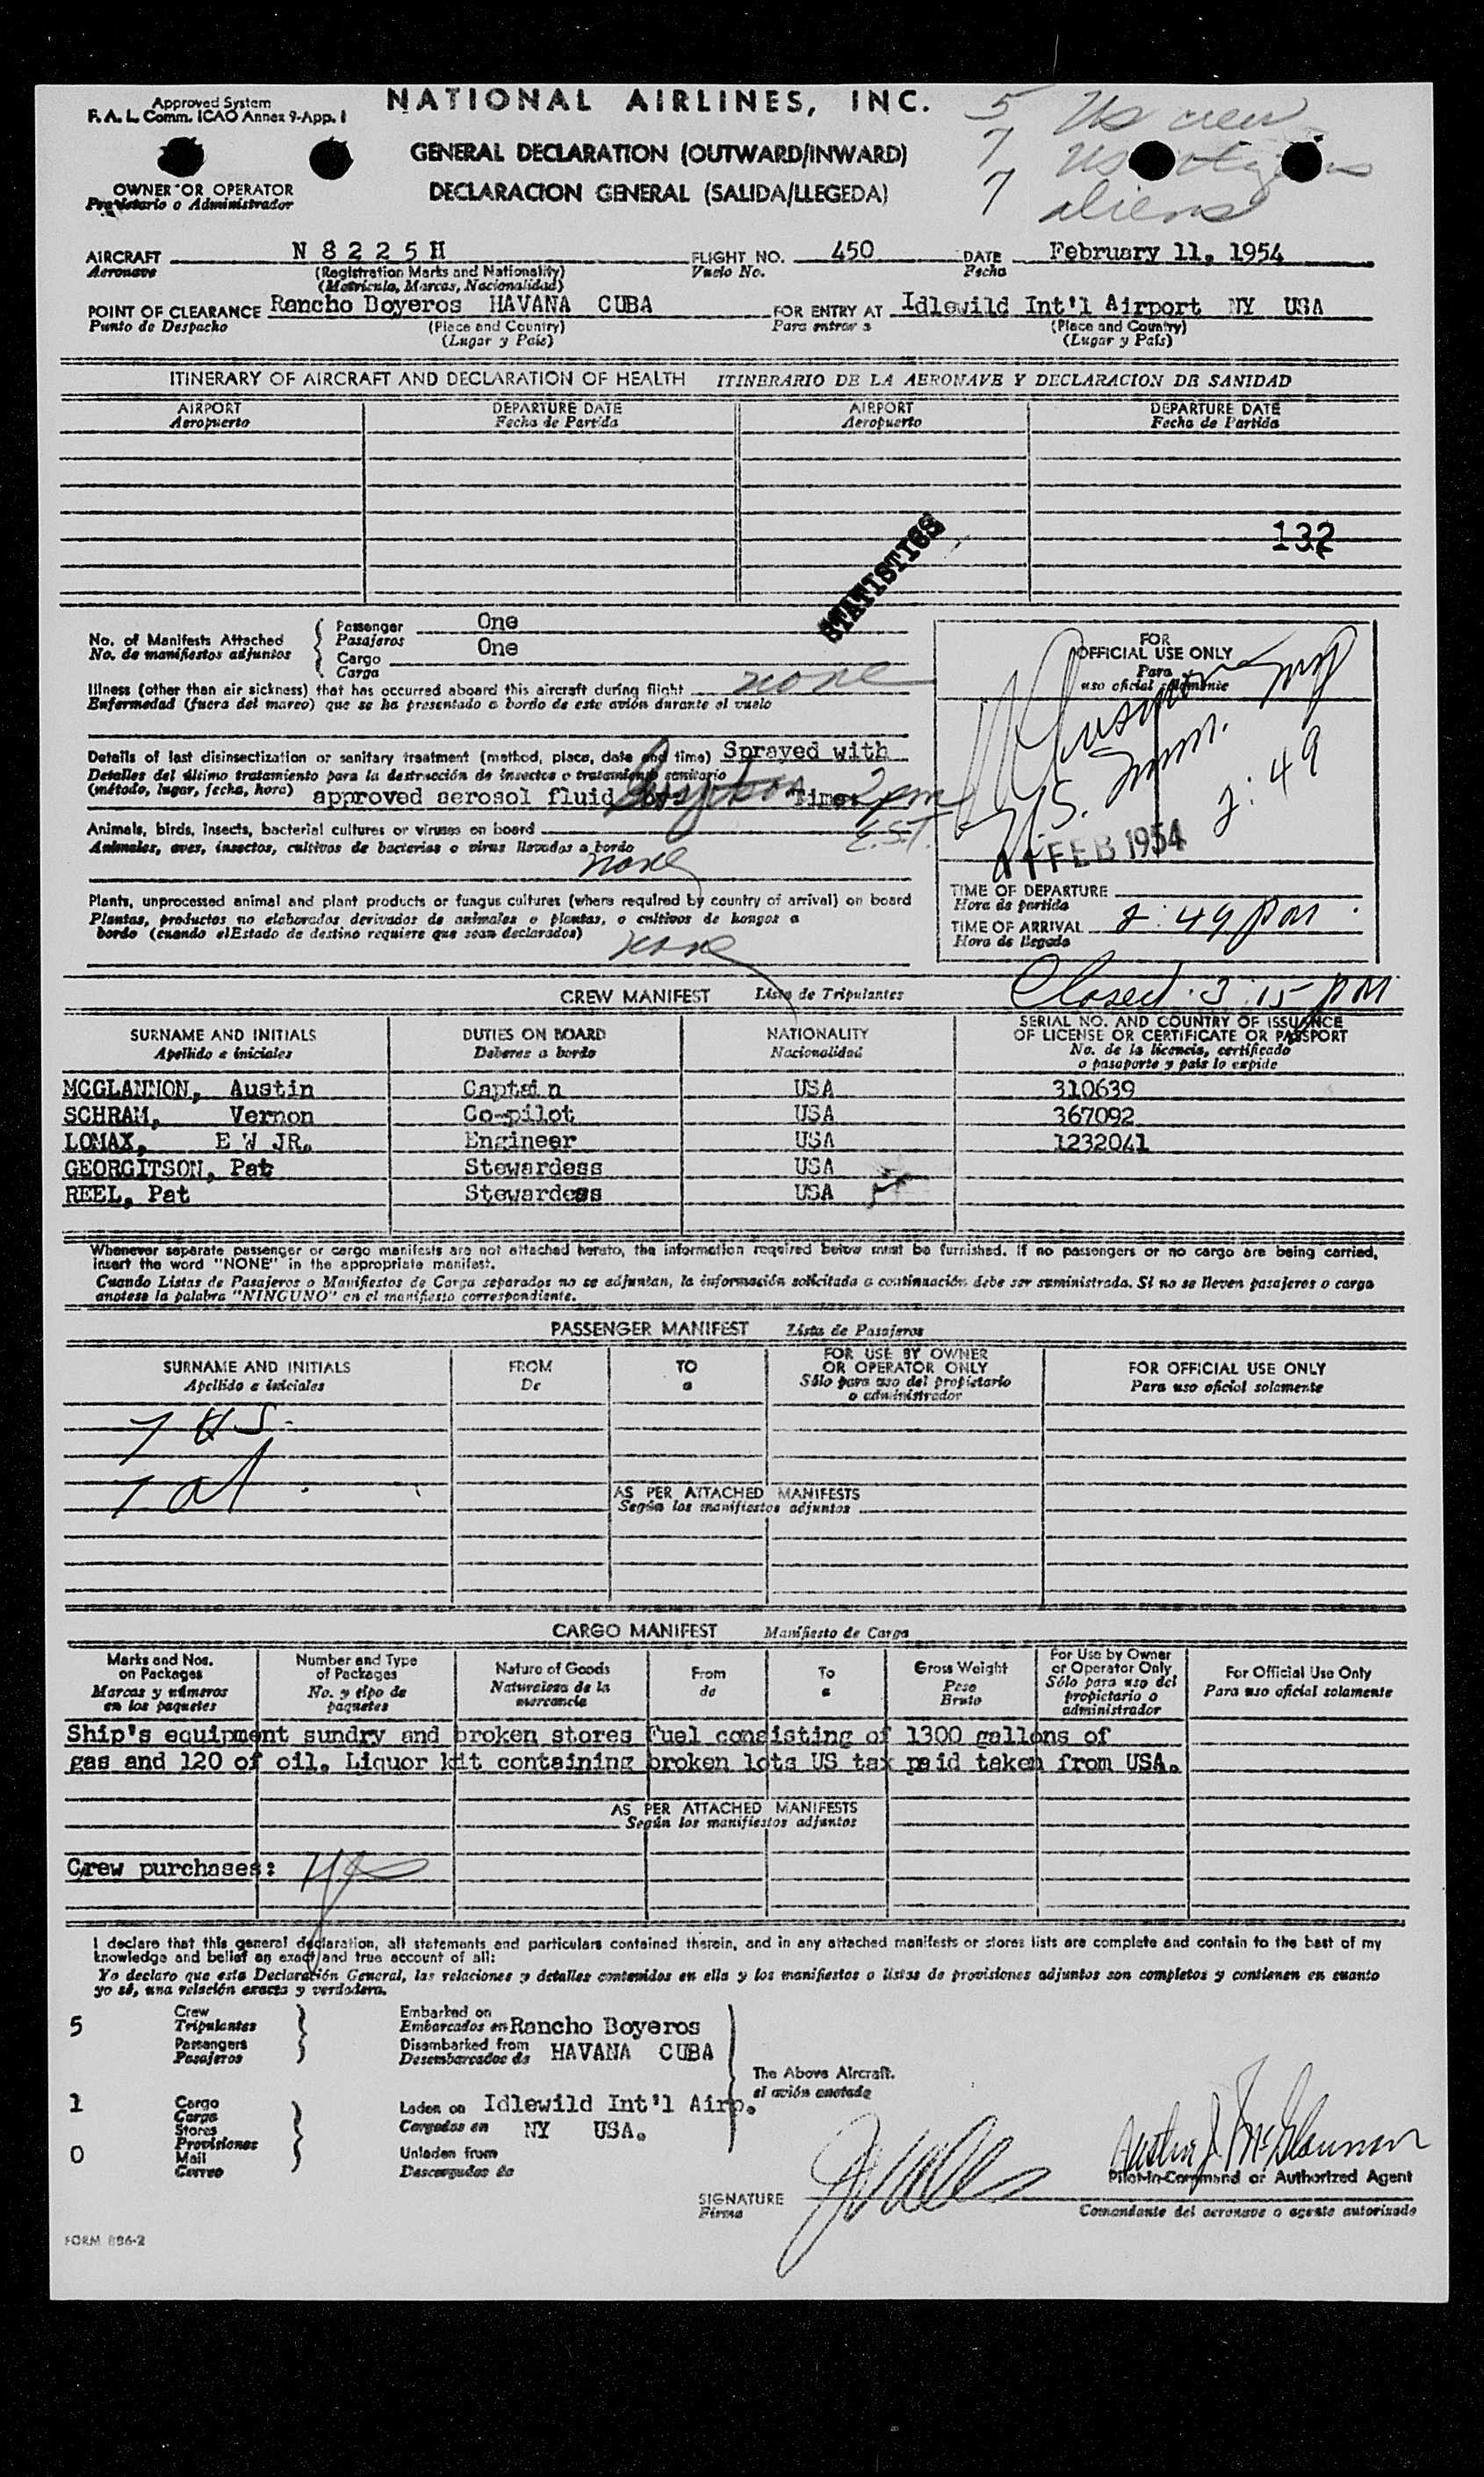 Approved System
F. A. L. Comm. ICAO Annex 9-App. 1
NATIONAL AIRLINES, INC.
5 US crew
7 US
7 aliens
GENERAL DECLARATION (OUTWARD/INWARD)
DECLARACION GENERAL (SALIDA/LLEGEDA)
OWNER OR OPERATOR
Propietario o Administrador
AIRCRAFT N 8 2 2 5 H FLIGHT NO. 450 DATE February 11, 1954
Aeronave (Registration Marks and Nationality) Vuelo No. Fecha
(Matricula, Marcas, Nacionalidad)
POINT OF CLEARANCE Rancho Boyeros HAVANA CUBA FOR ENTRY AT Idlewild Int'l Airport NY USA
Punto de Despacho (Place and Country) Para entrar a (Place and Country)
(Lugar y Pais) (Lugar y País)
ITINERARY OF AIRCRAFT AND DECLARATION OF HEALTH ITINERARIO DE LA AERONAVE Y DECLARACION DE SANIDAD
AIRPORT DEPARTURE DATE AIRPORT DEPARTURE DATE
Aeropuerto Fecha de Partida Aeropuerto Fecha de Partida
132
STATISTICS
No. of Manifests Attached Passenger One
No. de manifiestos adjuntos Pasajeros
Cargo One
Carga
Illness (other than air sickness) that has occurred aboard this aircraft during flight none
Enfermedad (fuera del mareo) que se ha presentado a bordo de este avión durante el vuelo
Details of last disinsectization or sanitary treatment (method, place, date and time) Sprayed with
Detalles del último tratamiento para la destrucción de insectos o tratamiento sanitario
(método, lugar, fecha, hora) approved aerosol fluid by: Time: 2pm
E.S.T.
Animals, birds, insects, bacterial cultures or viruses on board
Animales, aves, insectos, cultivos de bacterias o virus llevados a bordo
none
Plants, unprocessed animal and plant products or fungus cultures (where required by country of arrival) on board
Plantas, productos no elaborados derivados de animales o plantas, o cultivos de hongos a
bordo (cuando elEstado de destino requiere que sean declarados)
none
FOR
OFFICIAL USE ONLY
Para
uso oficial solamente
U.S. Imm.
2:49
11 FEB 1954
TIME OF DEPARTURE
Hora de partida
TIME OF ARRIVAL 2:49 PM
Hora de llegada
Closed 3:15 PM
CREW MANIFEST Lista de Tripulantes
SURNAME AND INITIALS DUTIES ON BOARD NATIONALITY SERIAL NO. AND COUNTRY OF ISSUANCE
OF LICENSE OR CERTIFICATE OR PASSPORT
Apellido e iniciales Deberes a bordo Nacionalidad No. de la licencia, certificado
o pasaporte y pais lo expide
MCGLANNON, Austin Captain USA 310639
SCHRAM, Vernon Co-pilot USA 367092
LOMAX, E W JR. Engineer USA 1232041
GEORGITSON, Pat Stewardess USA
REEL, Pat Stewardess USA
Whenever separate passenger or cargo manifests are not attached hereto, the information required below must be furnished. If no passengers or no cargo are being carried,
insert the word "NONE" in the appropriate manifest.
Cuando Listas de Pasajeros o Manifiestos de Carga separados no se adjuntan, la información solicitada a continuación debe ser suministrada. Si no se lleven pasajeros o carga
anotese la palabra "NINGUNO" en el manifiesto correspondiente.
PASSENGER MANIFEST Lista de Pasajeros
SURNAME AND INITIALS FROM TO FOR USE BY OWNER
OR OPERATOR ONLY FOR OFFICIAL USE ONLY
Apellido e iniciales De a Sólo para uso del propietario
o administrador Para uso oficial solamente
7 US.
7 al
AS PER ATTACHED MANIFESTS
Según los manifiestos adjuntos
CARGO MANIFEST Manifiesto de Carga
Marks and Nos.
on Packages
Marcas y números
en los paquetes
Number and Type
of Packages
No. y tipo de
paquetes
Nature of Goods
Naturaleza de la
mercancía
From
de
To
a
Gross Weight
Peso
Bruto
For Use by Owner
or Operator Only
Sólo para uso del
propietario o
administrador
For Official Use Only
Para uso oficial solamente
Ship's equipment sundry and broken stores Fuel consisting of 1300 gallons of
gas and 120 of oil. Liquor kit containing broken lots US tax paid taken from USA.
AS PER ATTACHED MANIFESTS
Según los manifiestos adjuntos
Crew purchases: yes
I declare that this general declaration, all statements and particulars contained therein, and in any attached manifests or stores lists are complete and contain to the best of my
knowledge and belief an exact and true account of all:
Yo declaro que esta Declaración General, las relaciones y detalles contenidos en ella y los manifiestos o listas de provisiones adjuntos son completos y contienen en cuanto
yo sé, una relación exacta y verdadera.
5 Crew
Tripulantes
Passengers
Pasajeros
Embarked on
Embarcados en Rancho Boyeros
Disembarked from
Desembarcados de HAVANA CUBA
The Above Aircraft.
el avión anotado
1 Cargo
Carga
Stores
Provisiones
0 Mail
Correo
Laden on Idlewild Int'l Airp.
Cargados en NY USA.
Unladen from
Descargados de
Austin J. McGlannon
Pilot-in-Command or Authorized Agent
SIGNATURE
Firma
Comandante del aeronave o agente autorizado
FORM 886-2